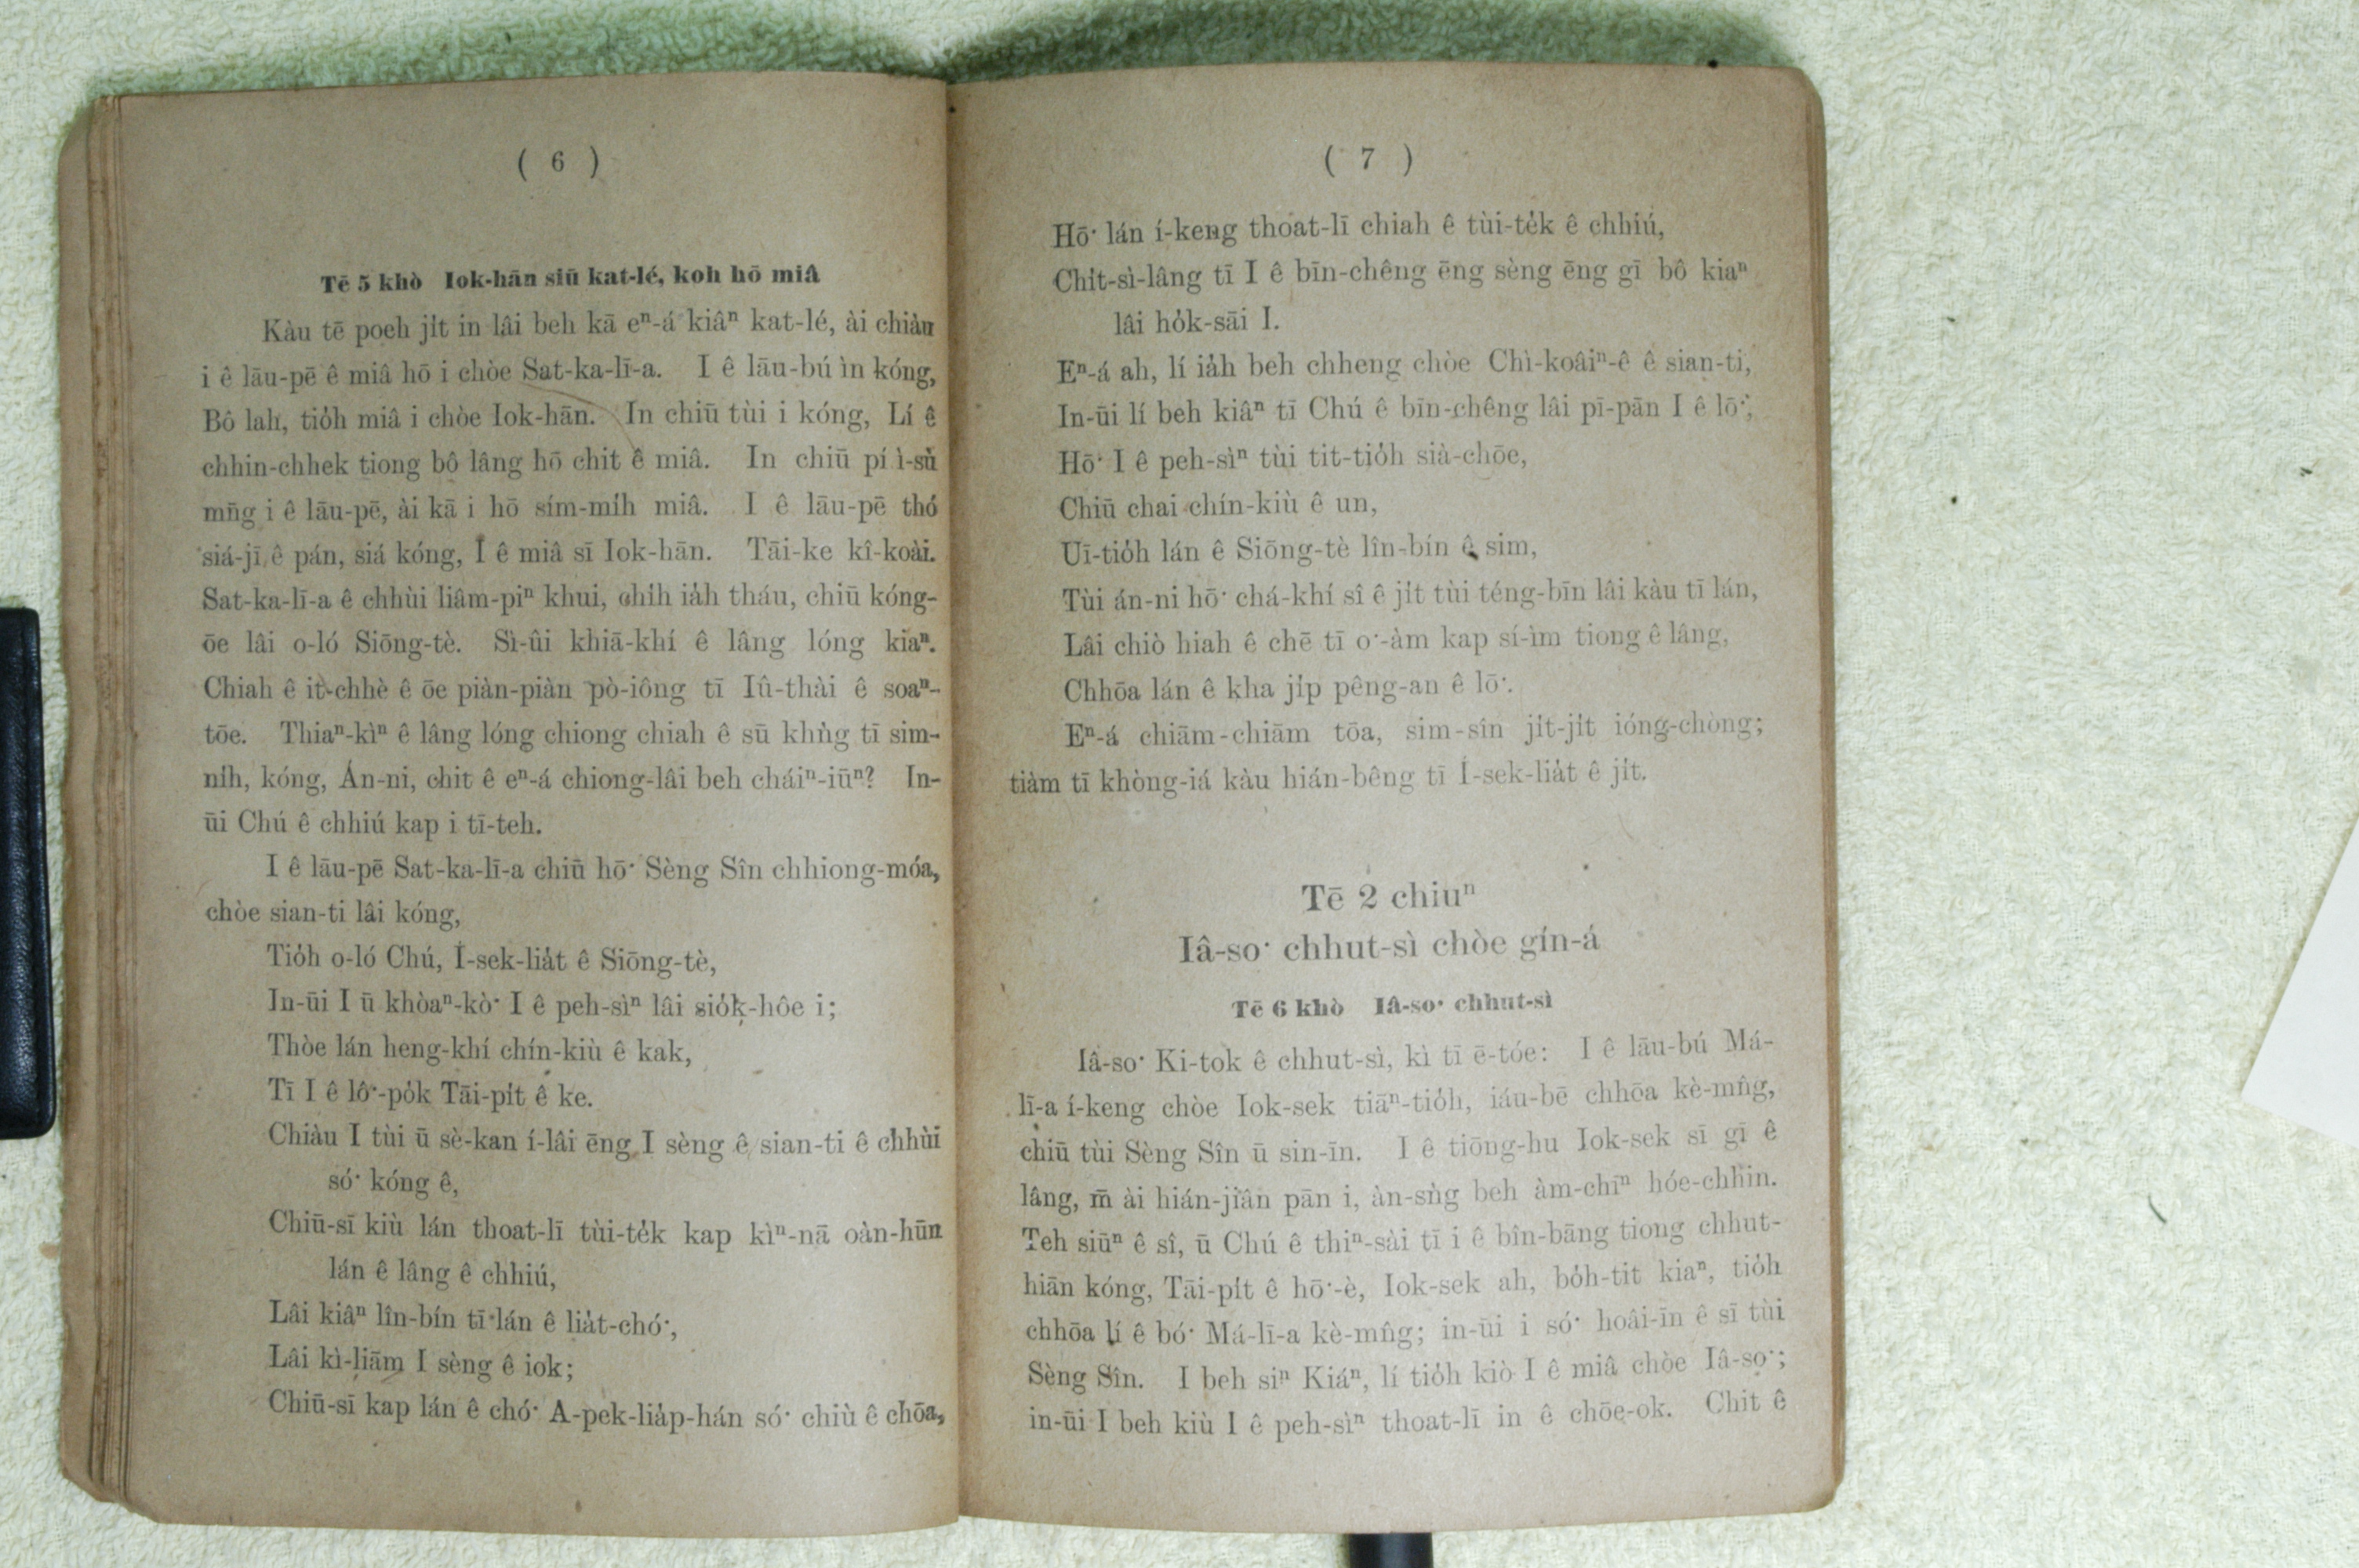 ( 6 )
Tē 5 khò Iok-hān siū kat-lé, koh hō miâ
Kàu tē poeh ji̍t in lâi beh kā eⁿ-á kiâⁿ kat-lé, ài chiàu
i ê lāu-pē ê miâ hō i chòe Sat-ka-lī-a. I ê lāu-bú ìn kóng,
Bô lah, tio̍h miâ i chòe Iok-hān. In chiū tùi i kóng, Lí ê
chhin-chhek tiong bô lâng hō chit ê miâ. In chiū pí ì-sù
mn̄g i ê lāu-pē, ài kā i hō sím-mi̍h miâ. I ê lāu-pē thó
siá-jī ê pán, siá kóng, I ê miâ sī Iok-hān. Tāi-ke kî-koài.
Sat-ka-lī-a ê chhùi liâm-piⁿ khui, chi̍h ia̍h tháu, chiū kóng-
ōe lâi o-ló Siōng-tè. Sì-ûi khiā-khí ê lâng lóng kiaⁿ.
Chiah ê it-chhè ê ōe piàn-piàn pò-iông tī Iû-thài ê soaⁿ-
tōe. Thiaⁿ-kìⁿ ê lâng lóng chiong chiah ê sū khǹg tī sim-
ni̍h, kóng, Án-ni, chit ê eⁿ-á chiong-lâi beh cháiⁿ-iūⁿ? In-
ūi Chú ê chhiú kap i tī-teh.
I ê lāu-pē Sat-ka-lī-a chiū hō͘ Sèng Sîn chhiong-móa,
chòe sian-ti lâi kóng,
Tio̍h o-ló Chú, Í-sek-lia̍t ê Siōng-tè,
In-ūi I ū khòaⁿ-kò͘ I ê peh-sìⁿ lâi sio̍k-hôe i;
Thòe lán heng-khí chín-kiù ê kak,
Tī I ê lô͘-po̍k Tāi-pi̍t ê ke.
Chiàu I tùi ū sè-kan í-lâi ēng I sèng ê sian-ti ê chhùi
só͘ kóng ê,
Chiū-sī kiù lán thoat-lī tùi-te̍k kap kìⁿ-nā oàn-hūn
lán ê lâng ê chhiú,
Lâi kiâⁿ lîn-bín tī lán ê lia̍t-chó͘,
Lâi kì-liām I sèng ê iok;
Chiū-sī kap lán ê chó͘ A-pek-lia̍p-hán só͘ chiù ê chōa,
( 7 )
Hō͘ lán í-keng thoat-lī chiah ê tùi-te̍k ê chhiú,
Chi̍t-sì-lâng tī I ê bīn-chêng ēng sèng ēng gī bô kiaⁿ
lâi ho̍k-sāi I.
Eⁿ-á ah, lí ia̍h beh chheng chòe Chì-koâiⁿ-ê ê sian-ti,
In-ūi lí beh kiâⁿ tī Chú ê bīn-chêng lâi pī-pān I ê lō͘,
Hō͘ I ê peh-sìⁿ tùi tit-tio̍h sià-chōe,
Chiū chai chín-kiù ê un,
Uī-tio̍h lán ê Siōng-tè lîn-bín ê sim,
Tùi án-ni hō͘ chá-khí sî ê ji̍t tùi téng-bīn lâi kàu tī lán,
Lâi chiò hiah ê chē tī o͘-àm kap sí-ìm tiong ê lâng,
Chhōa lán ê kha ji̍p pêng-an ê lō͘.
Eⁿ-á chiām-chiām tōa, sim-sîn ji̍t-ji̍t ióng-chòng;
tiàm tī khòng-iá kàu hián-bêng tī Í-sek-lia̍t ê ji̍t.
Tē 2 chiuⁿ
Iâ-so͘ chhut-sì chòe gín-á
Tē 6 khò Iâ-so͘ chhut-sì
Iâ-so͘ Ki-tok ê chhut-sì, kì tī ē-tóe: I ê lāu-bú Má-
lī-a í-keng chòe Iok-sek tiāⁿ-tio̍h, iáu-bē chhōa kè-mn̂g,
chiū tùi Sèng Sîn ū sin-īn. I ê tiōng-hu Iok-sek sī gī ê
lâng, m̄ ài hián-jiân pān i, àn-sǹg beh àm-chīⁿ hóe-chhin.
Teh siūⁿ ê sî, ū Chú ê thiⁿ-sài tī i ê bîn-bāng tiong chhut-
hiān kóng, Tāi-pi̍t ê hō͘-è, Iok-sek ah, bo̍h-tit kiaⁿ, tio̍h
chhōa lí ê bó͘ Má-lī-a kè-mn̂g; in-ūi i só͘ hoâi-īn ê sī tùi
Sèng Sîn. I beh siⁿ Kiáⁿ, lí tio̍h kiò I ê miâ chòe Iâ-so͘;
in-ūi I beh kiù I ê peh-sìⁿ thoat-lī in ê chōe-ok. Chit ê